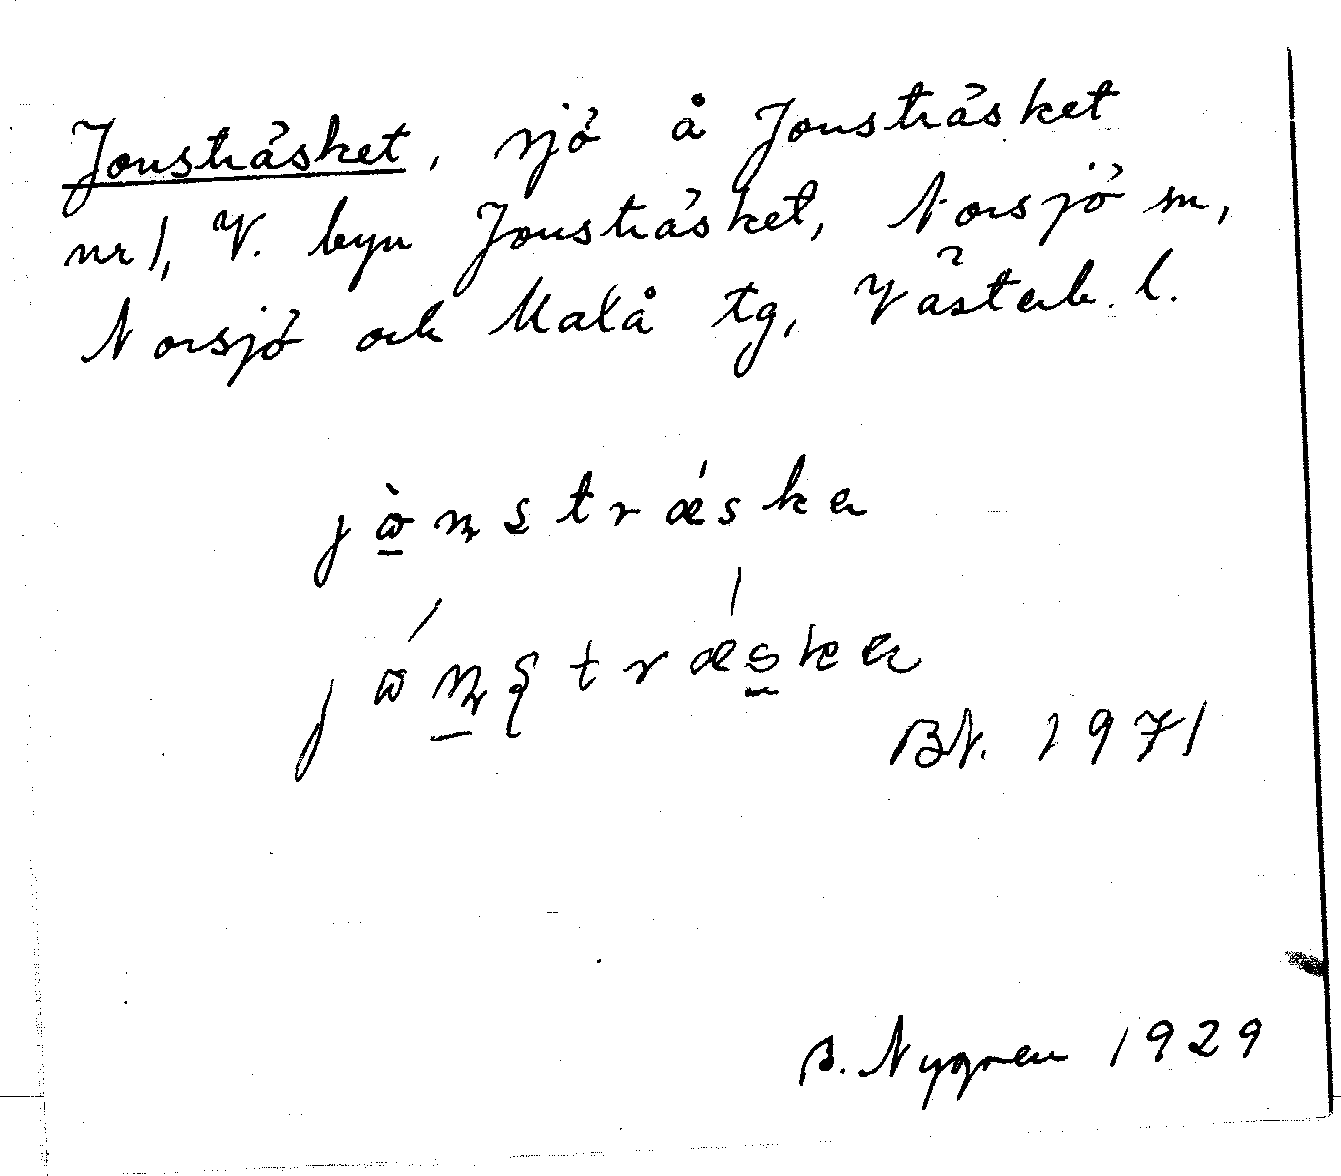 Jonsträsket, sjö å Jonsträsket
nr 1, V. byn Jonsträsket, Norsjö sn,
Norsjö och Malå tg, Västerb. l.
jò̱nsträ́ska
jɷ́nstrǽska
BN. 1971
B. Nygren 1929